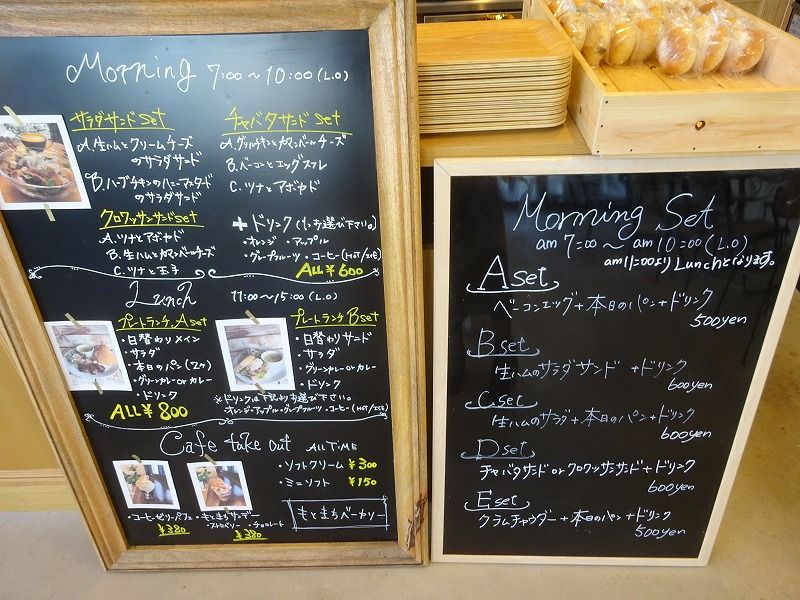 Morning 7:00～10:00(L.O)
サラダサンドset
A.生ハムとクリームチーズ
のサラダサンド
B.ハーブチキンのハニーマスタード
のサラダサンド
クロワッサンサンドset
A.ツナとアボカド
B.生ハムとカマンベールチーズ
C.ツナと玉子
チャバタサンドset
A.グリルチキンとカマンベールチーズ
B.ベーコンとエッグスフレ
C.ツナとアボカド
+ドリンク(1つお選び下さい。)
・オレンジ ・アップル
・グレープフルーツ ・コーヒー(HOT/ICE)
ALL¥600
Lunch 11:00～15:00(L.O)
プレートランチ.Aset
・日替わりメイン
・サラダ
・本日のパン(2ヶ)
・グリーンカレーorカレー
・ドリンク
ALL¥800
プレートランチBset
・日替わりサンド
・サラダ
・グリーンカレーorカレー
・ドリンク
※ドリンクは下記よりお選び下さい。
オレンジ・アップル・グレープフルーツ・コーヒー(HOT/ICE)
Cafe take out ALL TIME
・ソフトクリーム ¥300
・ミニソフト ¥150
・コーヒーゼリーパフェ
¥380
・もとまちサンデー
・ストロベリー ・チョコレート
¥380
もとまちベーカリー
Morning Set
am 7:00 ～ am 10:00(L.O)
am11:00よりLunchとなります。
Aset
ベーコンエッグ+本日のパン+ドリンク
500yen
Bset
生ハムのサラダサンド +ドリンク
600yen
Cset
生ハムのサラダ+本日のパン+ドリンク
600yen
Dset
チャバタサンドorクロワッサンサンド+ドリンク
600yen
Eset
クラムチャウダー+本日のパン+ドリンク
500yen